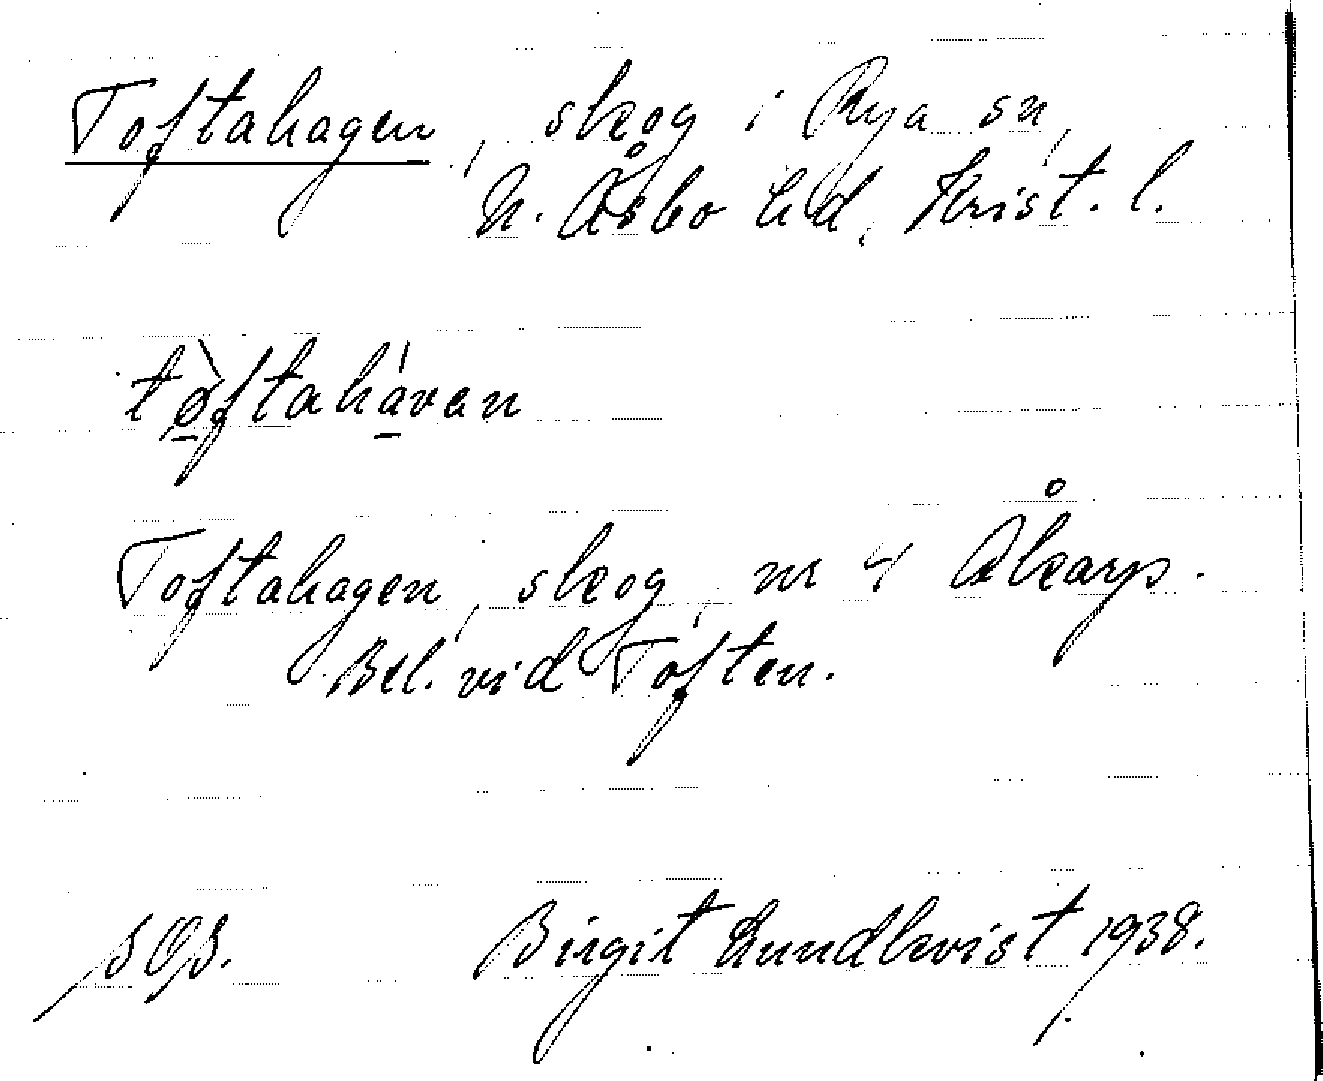 Toftahagen, skog i Rya sn,
N. Åsbo hd, Krist. l.
tø̀ftahávan
Toftahagen, skog, nr 4 Åkarp.
Bel. vid Toften.
Birgit Lundkvist 1938.